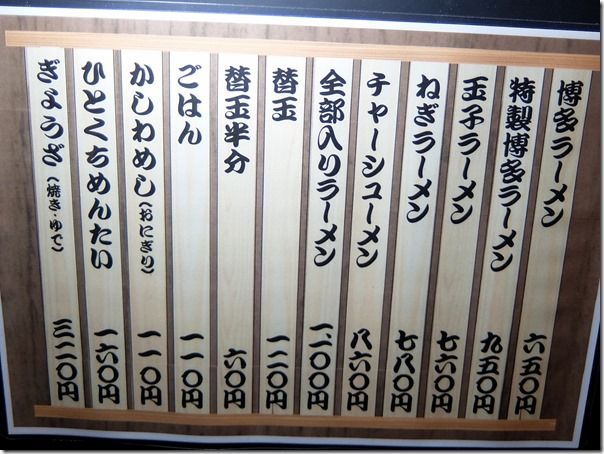 博多ラーメン 六五〇円
特製博多ラーメン 九五〇円
玉子ラーメン 七六〇円
ねぎラーメン 七八〇円
チャーシューメン 八六〇円
全部入りラーメン 一、一〇〇円
替玉 一二〇円
替玉半分 六〇円
ごはん 一一〇円
かしわめし(おにぎり) 一一〇円
ひとくちめんたい 一六〇円
ぎょうざ(焼き・ゆで) 三二〇円